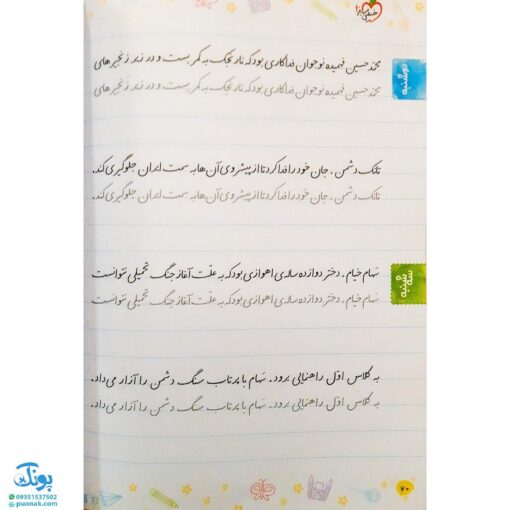 دوشنبه
محمّدحسین فهمیده نوجوان فداکاری بود که نارنجک به کمر بست و در زیر زنجیرهای
محمّدحسین فهمیده نوجوان فداکاری بود که نارنجک به کمر بست و در زیر زنجیرهای
تانک دشمن، جان خود را فدا کرد تا از پیشروی آن‌ها به سمت ایران جلوگیری کند.
تانک دشمن، جان خود را فدا کرد تا از پیشروی آن‌ها به سمت ایران جلوگیری کند.
سه شنبه
سَهام خیام، دختر دوازده ساله‌ی اهوازی بود که به علّت آغاز جنگ تحمیلی نتوانست
سَهام خیام، دختر دوازده ساله‌ی اهوازی بود که به علّت آغاز جنگ تحمیلی نتوانست
به کلاس اوّل راهنمایی برود. سَهام با پرتاب سنگ دشمن را آزار می‌داد.
به کلاس اوّل راهنمایی برود. سَهام با پرتاب سنگ دشمن را آزار می‌داد.
۶۰
پونک
09351537502
puonak.com